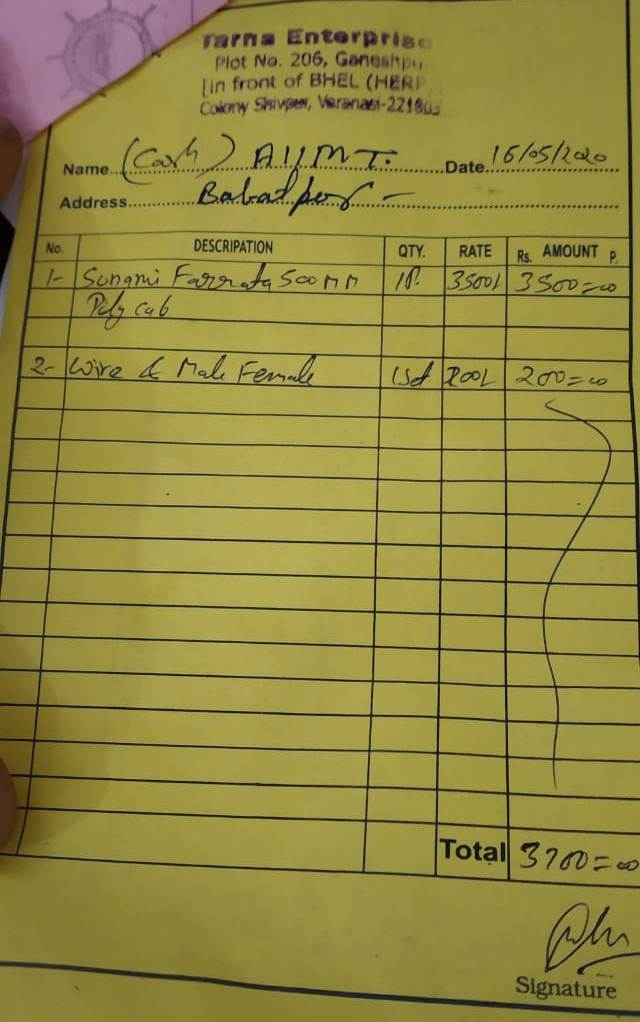 Tarna Enterprise
Plot No. 206, Ganeshpu
[in front of BHEL (HERP
Colony Shivpur, Varanasi-221003
Name (Cash) AIIMT. Date 16/05/2020
Address Babatpor -
No. DESCRIPATION QTY. RATE Rs. AMOUNT P.
1- Sunami Farrata 500 MM 1P. 3500/ 3500=00
Poly cab
2- Wire & Male Female 1 Set 200/ 200=00
Total 3700=00
Signature